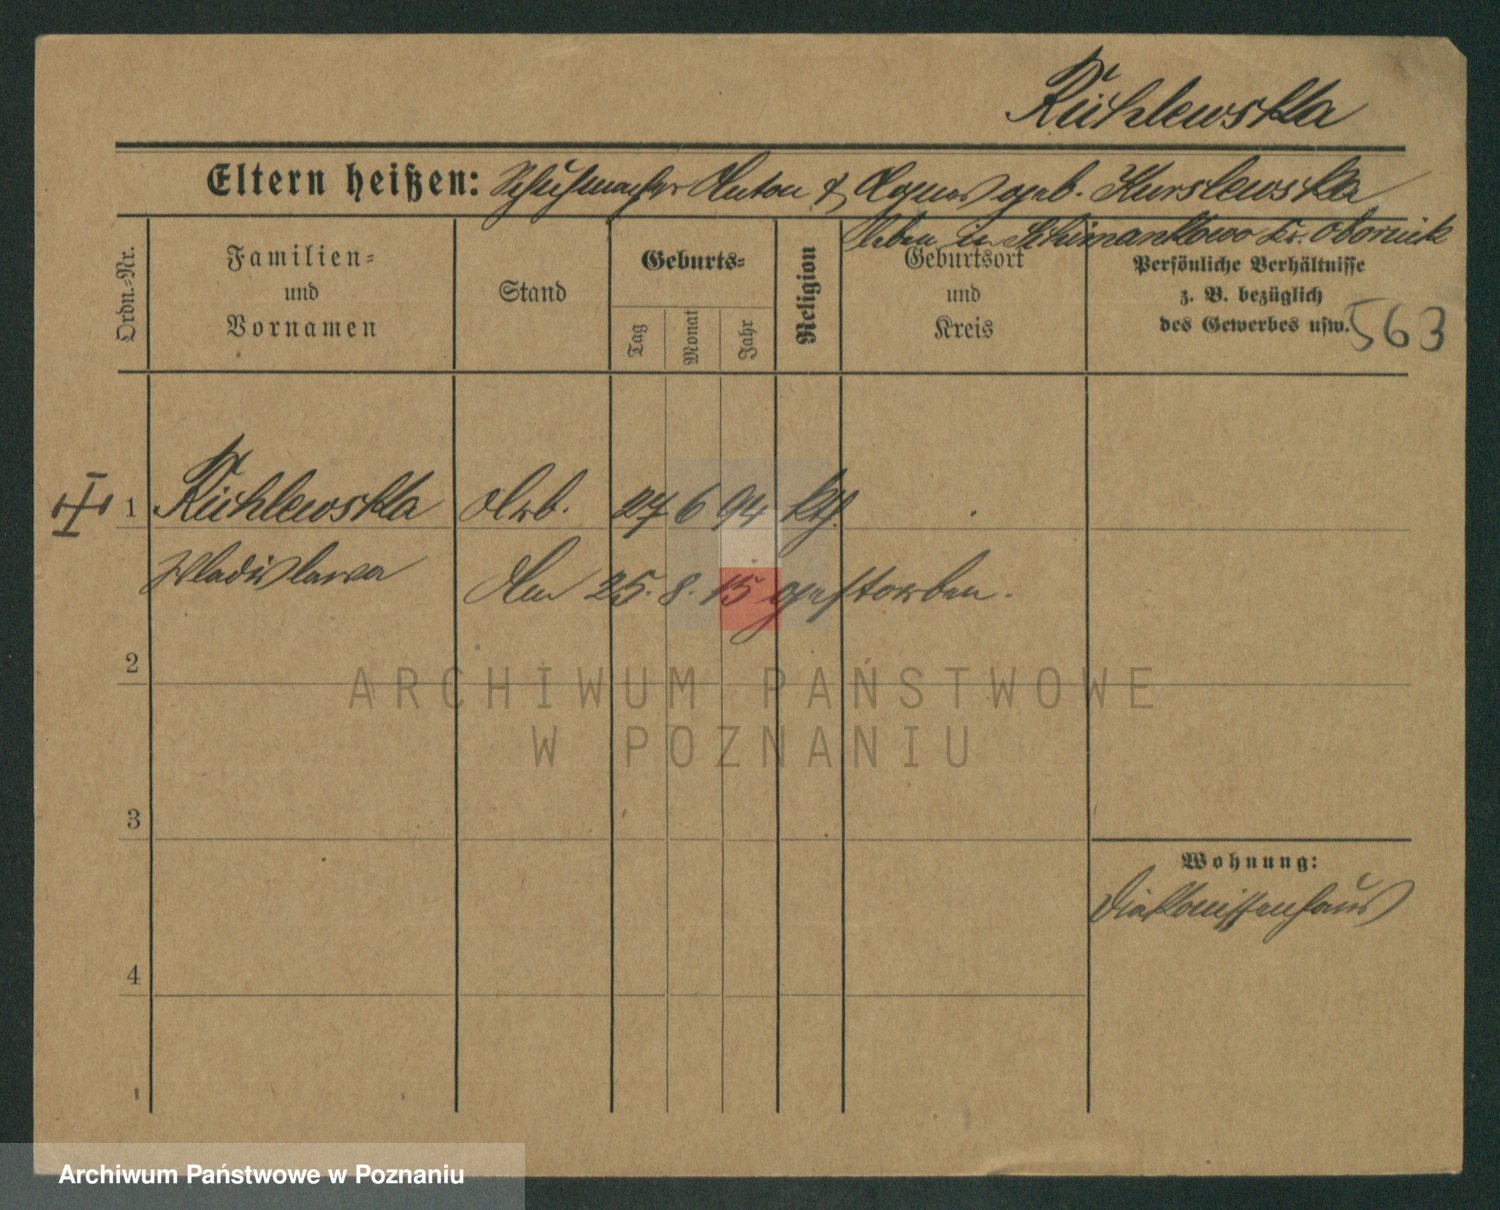 Rühlewska
Eltern heißen: Schuhmacher Anton & Agnes geb. Kurslewska
leben in Schimankowo Kr. Obornik
Ordn.-Nr.
Familien-
und
Vornamen
Stand
Geburts-
Tag
Monat
Jahr
Religion
Geburtsort
und
Kreis
Persönliche Verhältnisse
z. B. bezüglich
des Gewerbes usw.
563
1 Rühlewska Arb. 27 6 94 kth.
Wladislawa Am 25. 8. 15 gestorben.
2
ARCHIWUM PAŃSTWOWE
W POZNANIU
3
Wohnung:
Diakonissenhaus
4
Archiwum Państwowe w Poznaniu